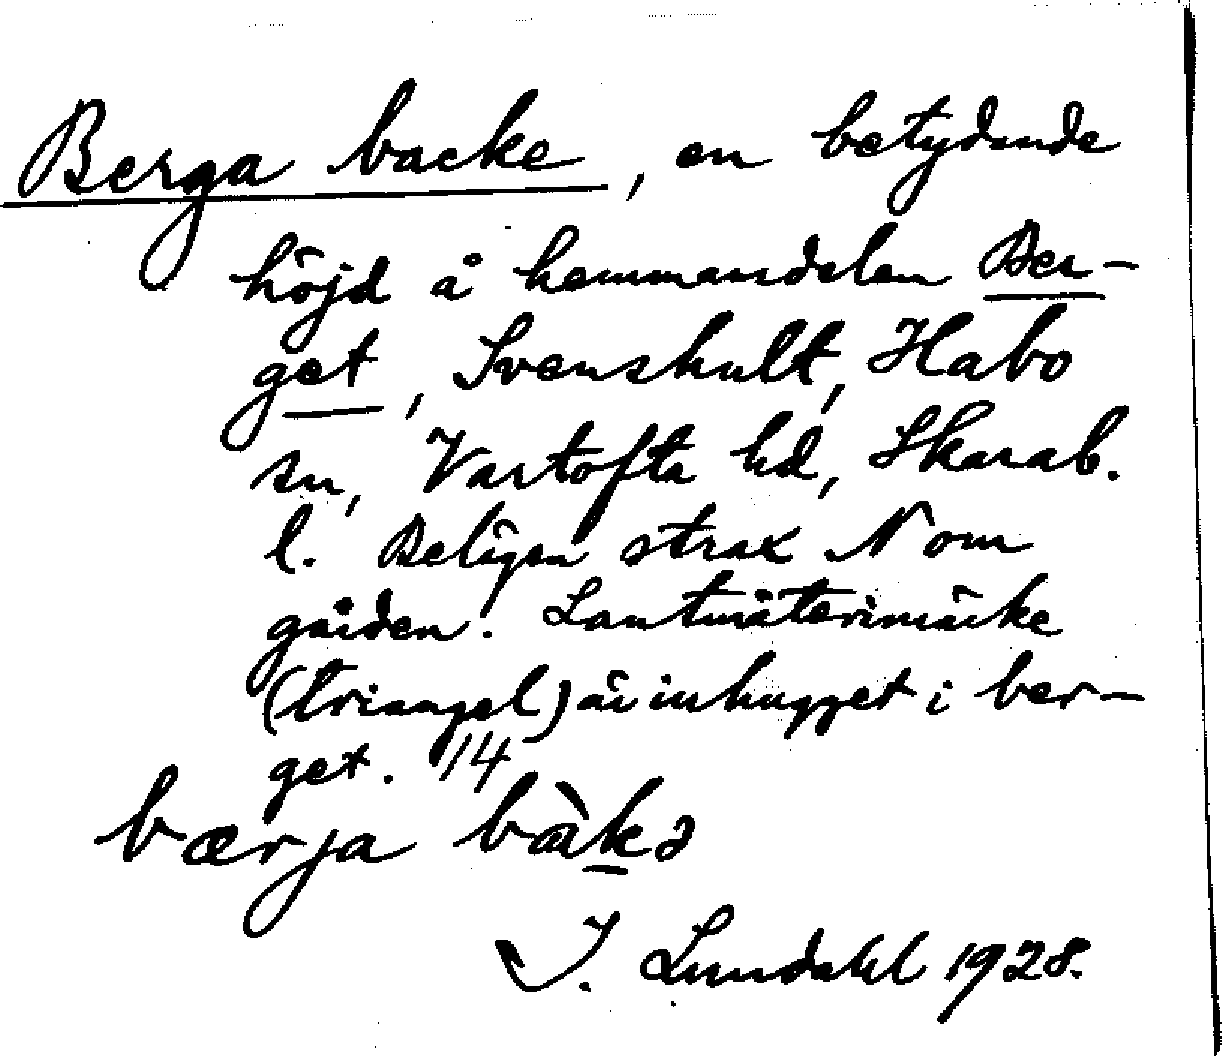 Berga backe, en betydande
höjd å hemmansdelen Ber-
get, Svenshult, Habo
sn, Vartofta hd, Skarab.
l. Belägen strax N om
gården. Lantmäterimärke
(triangel) är inhugget i ber-
get. 1/4
bærja bàkə
I. Lundahl 1928.